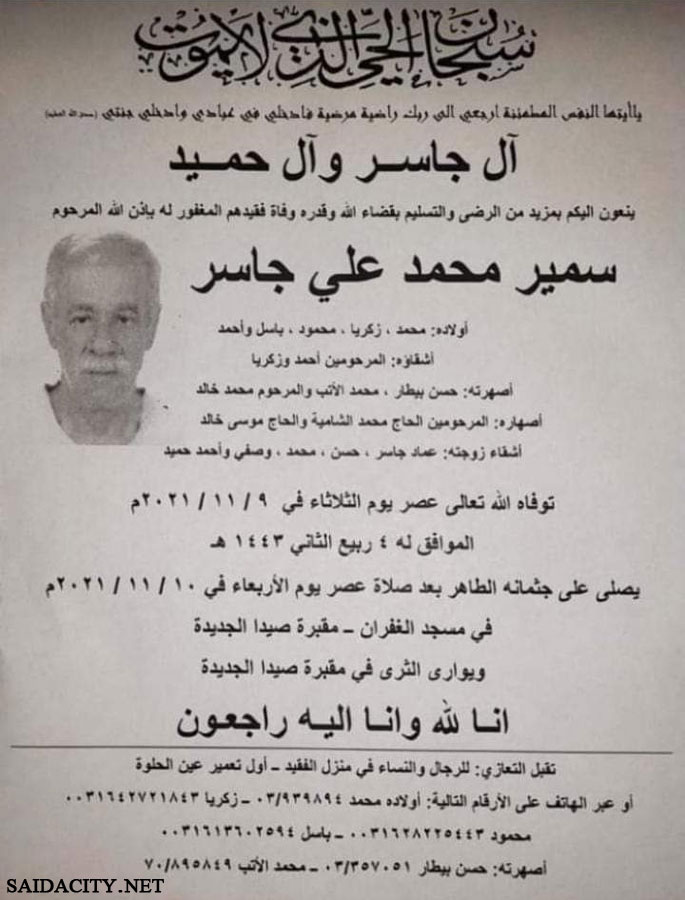 سبحان الحي الذي لا يموت
ياأيتها النفس المطمئنة ارجعي الى ربك راضية مرضية فادخلي في عبادي وادخلي جنتي
آل جاسر وآل حميد
ينعون اليكم بمزيد من الرضى والتسليم بقضاء الله وقدره وفاة فقيدهم المغفور له بإذن الله المرحوم
سمير محمد علي جاسر
أولاده: محمد ، زكريا ، محمود ، باسل وأحمد
أشقاؤه: المرحومين أحمد وزكريا
أصهرته: حسن بيطار ، محمد الأتب والمرحوم محمد خالد
أصهاره: المرحومين الحاج محمد الشامية والحاج موسى خالد
أشقاء زوجته: عماد جاسر ، حسن ، محمد ، وصفي وأحمد حميد
توفاه الله تعالى عصر يوم الثلاثاء في ٩ / ١١ / ٢٠٢١م
الموافق له ٤ ربيع الثاني ١٤٤٣ هـ
يصلى على جثمانه الطاهر بعد صلاة عصر يوم الأربعاء في ١٠ / ١١ / ٢٠٢١م
في مسجد الغفران – مقبرة صيدا الجديدة
ويوارى الثرى في مقبرة صيدا الجديدة
انا لله وانا اليه راجعون
تقبل التعازي: للرجال والنساء في منزل الفقيد – أول تعمير عين الحلوة
أو عبر الهاتف على الأرقام التالية: أولاده محمد ٠٣/٩٣٩٨٩٤ – زكريا ٠٠٣١٦٤٢٧٢١٨٤٣
محمود ٠٠٣١٦٢٨٢٢٥٤٤٣ – باسل ٠٠٣١٦١٣٦٠٢٥٩٤
أصهرته: حسن بيطار ٠٣/٣٥٧٠٥١ – محمد الأتب ٧٠/٨٩٥٨٤٩
SAIDACITY.NET